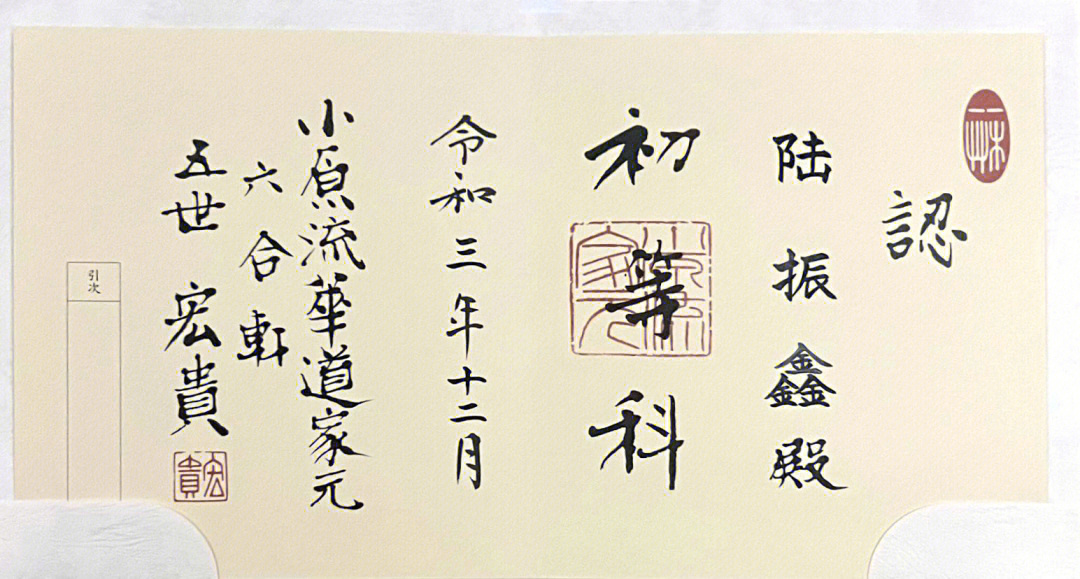 認
陸振鑫殿
初等科
小原流家元
令和三年十二月
小原流華道家元
六合軒
五世 宏貴
宏貴
引次